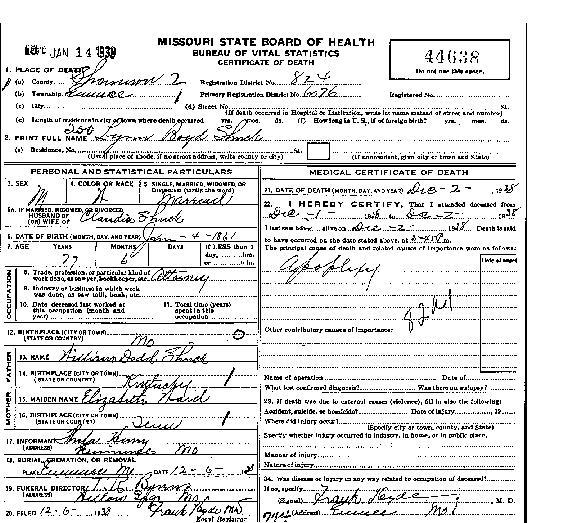 REC'D JAN 14 1939
MISSOURI STATE BOARD OF HEALTH
BUREAU OF VITAL STATISTICS
CERTIFICATE OF DEATH
44638
Do not use this space.
1. PLACE OF DEATH
(a) County Shannon 2 Registration District No. 824
(b) Township Eminence 1 Primary Registration District No. 6076 Registered No.
(c) City (d) Street No. St.
(If death occurred in Hospital & Institution, write its name instead of street and number)
(e) Length of residence in city or town where death occurred yrs. mos. ds. (f) How long in U. S., if of foreign birth? yrs. mos. ds.
2. PRINT FULL NAME Lynn Boyd Shuck
(a) Residence, No. St.
(Usual place of abode, if no street address, write county or city) (If nonresident, give city or town and State)
PERSONAL AND STATISTICAL PARTICULARS
3. SEX M
4. COLOR OR RACE W
5. SINGLE, MARRIED, WIDOWED, OR DIVORCED (write the word) Married
5a. IF MARRIED, WIDOWED, OR DIVORCED
HUSBAND OF (OR) WIFE OF Claudia Shuck
6. DATE OF BIRTH (MONTH, DAY, AND YEAR) Jan-4-1861
7. AGE YEARS MONTHS DAYS If LESS than 1 day, hrs. or min.
77
OCCUPATION
8. Trade, profession, or particular kind of work done, as sawyer, bookkeeper, etc. Attorney
9. Industry or business in which work was done, as saw mill, bank, etc.
10. Date deceased last worked at this occupation (month and year)
11. Total time (years) spent in this occupation
12. BIRTHPLACE (CITY OR TOWN) (STATE OR COUNTRY) Mo
FATHER
13. NAME William Dodd Shuck
14. BIRTHPLACE (CITY OR TOWN) (STATE OR COUNTRY) Kentucky 1
MOTHER
15. MAIDEN NAME Elizabeth Ward
16. BIRTHPLACE (CITY OR TOWN) (STATE OR COUNTRY) Tenn 1
17. INFORMANT
(ADDRESS) Eminence Mo
18. BURIAL, CREMATION, OR REMOVAL
PLACE Eminence Mo. DATE 12-6-38
19. FUNERAL DIRECTOR
(ADDRESS) Willow Spgs Mo.
20. FILED 12-6- 1938 Frank Hyde MD
Local Registrar
MEDICAL CERTIFICATE OF DEATH
21. DATE OF DEATH (MONTH, DAY, AND YEAR) Dec-2- 1938
22. I HEREBY CERTIFY, That I attended deceased from
Dec-1- 1938 to Dec-2- 1938
I last saw him alive on Dec-2- 1938 Death is said
to have occurred on the date stated above, at m.
The principal cause of death and related causes of importance were as follows:
Date of onset
Apoplexy
82A1
Other contributory causes of importance:
Name of operation Date of
What test confirmed diagnosis? Was there an autopsy?
23. If death was due to external causes (violence), fill in also the following:
Accident, suicide, or homicide? Date of injury 19
Where did injury occur?
(Specify city or town, county, and State)
Specify whether injury occurred in industry, in home, or in public place.
Manner of injury
Nature of injury
24. Was disease or injury in any way related to occupation of deceased?
If so, specify
(Signed) Frank Hyde M. D.
Eminence Mo.